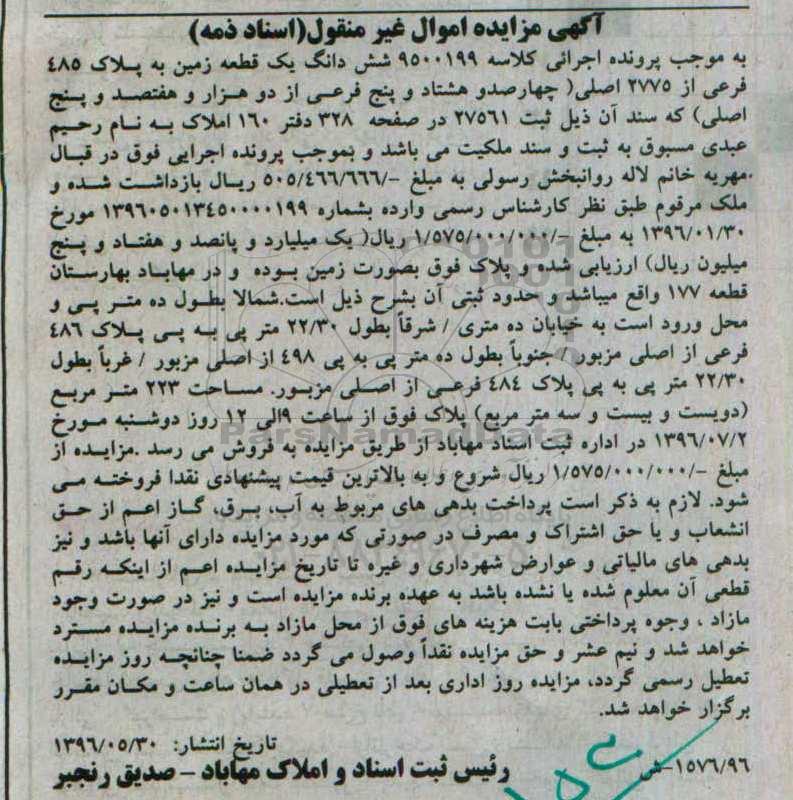 آگهی مزایده اموال غیر منقول(اسناد ذمه)
به موجب پرونده اجرائی کلاسه ۹۵۰۰۱۹۹ شش دانگ یک قطعه زمین به پلاک ۴۸۵
فرعی از ۲۷۷۵ اصلی( چهارصدو هشتاد و پنج فرعی از دو هزار و هفتصد و پنج
اصلی) که سند آن ذیل ثبت ۲۷۵۶۱ در صفحه ۳۲۸ دفتر ۱۶۰ املاک به نام رحیم
عبدی مسبوق به ثبت و سند ملکیت می باشد و بموجب پرونده اجرایی فوق در قبال
مهریه خانم لاله روانبخش رسولی به مبلغ -/۵۰۵/۴۶۶/۶۶۶ ریال بازداشت شده و
ملک مرقوم طبق نظر کارشناس رسمی وارده بشماره ۱۳۹۶۰۵۰۱۳۴۵۰۰۰۰۱۹۹ مورخ
۱۳۹۶/۰۱/۳۰ به مبلغ -/۱/۵۷۵/۰۰۰/۰۰۰ ریال( یک میلیارد و پانصد و هفتاد و پنج
میلیون ریال) ارزیابی شده و پلاک فوق بصورت زمین بوده و در مهاباد بهارستان
قطعه ۱۷۷ واقع میباشد و حدود ثبتی آن بشرح ذیل است.شمالا بطول ده متر پی و
محل ورود است به خیابان ده متری / شرقاً بطول ۲۲/۳۰ متر پی به پی پلاک ۴۸۶
فرعی از اصلی مزبور / جنوباً بطول ده متر پی به پی ۴۹۸ از اصلی مزبور / غرباً بطول
۲۲/۳۰ متر پی به پی پلاک ۴۸۴ فرعی از اصلی مزبور. مساحت ۲۲۳ متر مربع
(دویست و بیست و سه متر مربع) پلاک فوق از ساعت ۹الی ۱۲ روز دوشنبه مورخ
۱۳۹۶/۰۷/۲ در اداره ثبت اسناد مهاباد از طریق مزایده به فروش می رسد .مزایده از
مبلغ -/۱/۵۷۵/۰۰۰/۰۰۰ ریال شروع و به بالاترین قیمت پیشنهادی نقدا فروخته می
شود. لازم به ذکر است پرداخت بدهی های مربوط به آب، برق، گاز اعم از حق
انشعاب و یا حق اشتراک و مصرف در صورتی که مورد مزایده دارای آنها باشد و نیز
بدهی های مالیاتی و عوارض شهرداری و غیره تا تاریخ مزایده اعم از اینکه رقم
قطعی آن معلوم شده یا نشده باشد به عهده برنده مزایده است و نیز در صورت وجود
مازاد ، وجوه پرداختی بابت هزینه های فوق از محل مازاد به برنده مزایده مسترد
خواهد شد و نیم عشر و حق مزایده نقداً وصول می گردد ضمنا چنانچه روز مزایده
تعطیل رسمی گردد، مزایده روز اداری بعد از تعطیلی در همان ساعت و مکان مقرر
برگزار خواهد شد.
تاریخ انتشار: ۱۳۹۶/۰۵/۳۰
۱۵۷۶/۹۶-ش
رئیس ثبت اسناد و املاک مهاباد - صدیق رنجبر
ParsNamadData